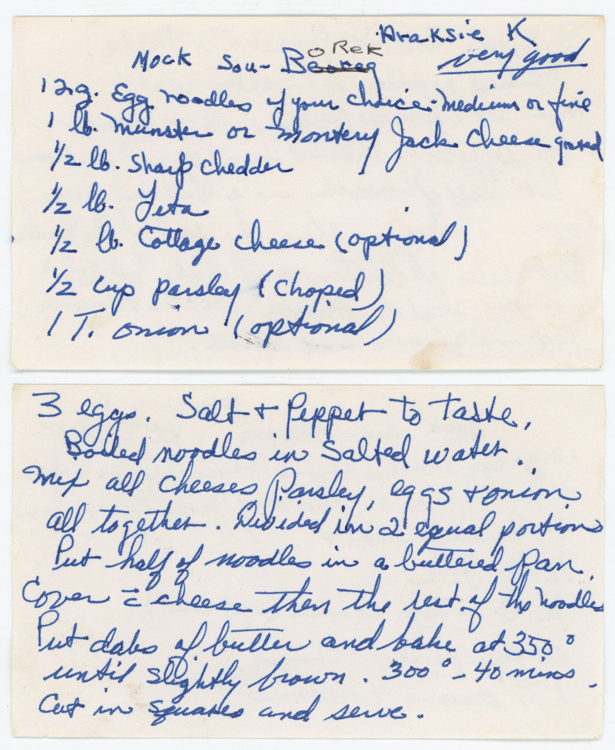 Araksie K
Mock Sou-Beoreg OREK very good
12 oz. Egg noodles of your choice-medium or fine
1 lb. Munster or Montery Jack Cheese grated
1/2 lb. Sharp Chedder
1/2 lb. Feta
1/2 lb. Cottage cheese (optional)
1/2 cup parsley (choped)
1 T. onion (optional)
3 eggs. Salt + Pepper to taste,
Boiled noodles in salted water.
Mix all cheeses Parsley, eggs + onion
all together. Divided in 2 equal portions
Put half of noodles in a buttered pan.
Cover c̄ cheese then the rest of the noodles
Put dabs of butter and bake at 350°
until slightly brown. 300° - 40 mins.
Cut in squares and serve.